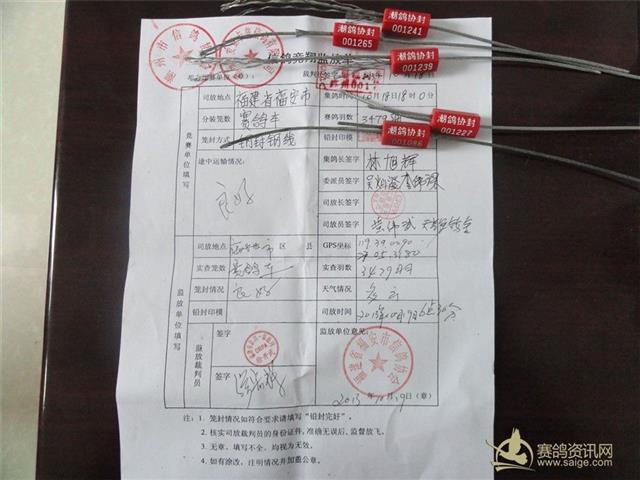 潮鸽协封
001241
潮鸽协封
001265
潮鸽协封
001239
潮鸽协封
001227
潮鸽协封
信鸽竞翔监放单
竞赛单位填写
司放地点 福建省福安市 集鸽时间 10月18日18时0分
分装笼数 赛鸽车 赛鸽羽数 3479羽
笼封方式 铅封钢线 铅封印模
途中运输情况： 集鸽长签字 林旭辉
良好
委派员签字
司放长签字
司放员签字
监放单位填写
司放地点 福安市 区 县 GPS坐标
实查笼数 赛鸽车 实查羽数 3479羽
笼封情况 良好 天气情况 多云
铅封印模 司放时间 2013年10月19日6点30分
监放裁判员 签字 监放单位意见：
签字
福建省福安市信鸽协会
2013年10月19日（章）
注：1. 笼封情况如符合要求请填写“铅封完好”。
2. 核实司放裁判员的身份证件，准确无误后、监督放飞。
3. 无章、填写不全、均视为无效。
4. 如有涂改，注明情况并加盖公章。
赛鸽资讯网
www.saige.com